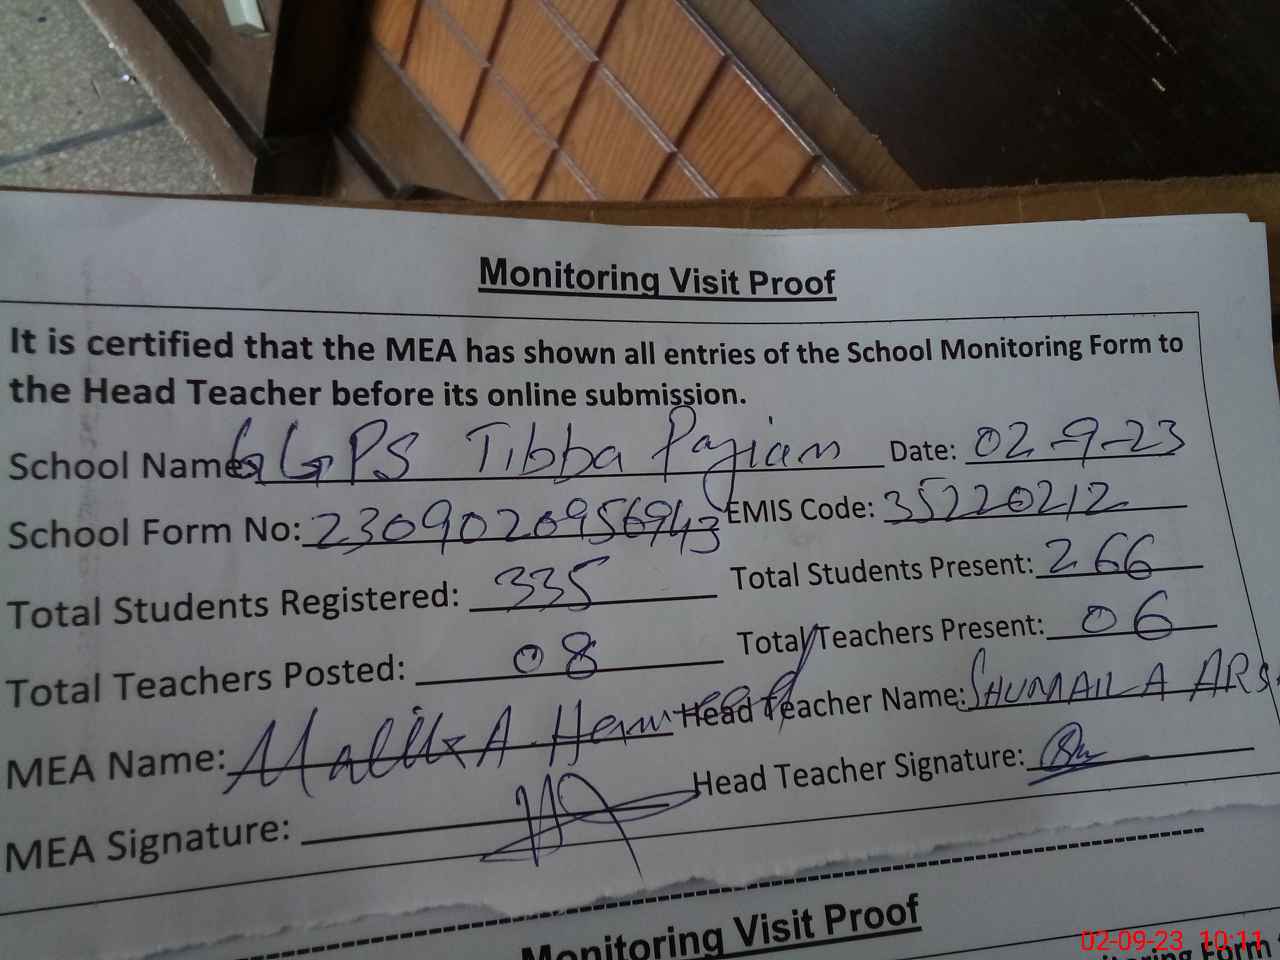 Monitoring Visit Proof
It is certified that the MEA has shown all entries of the School Monitoring Form to
the Head Teacher before its online submission.
School Name: GGPS Tibba Pajiam Date: 02-9-23
School Form No: 230902095694 EMIS Code: 35220212
Total Students Registered: 335 Total Students Present: 266
Total Teachers Posted: 08 Total Teachers Present: 06
MEA Name: Malik A. Head Teacher Name: SHUMAILA ARS
MEA Signature: Head Teacher Signature:
Monitoring Visit Proof
02-09-23 10:11